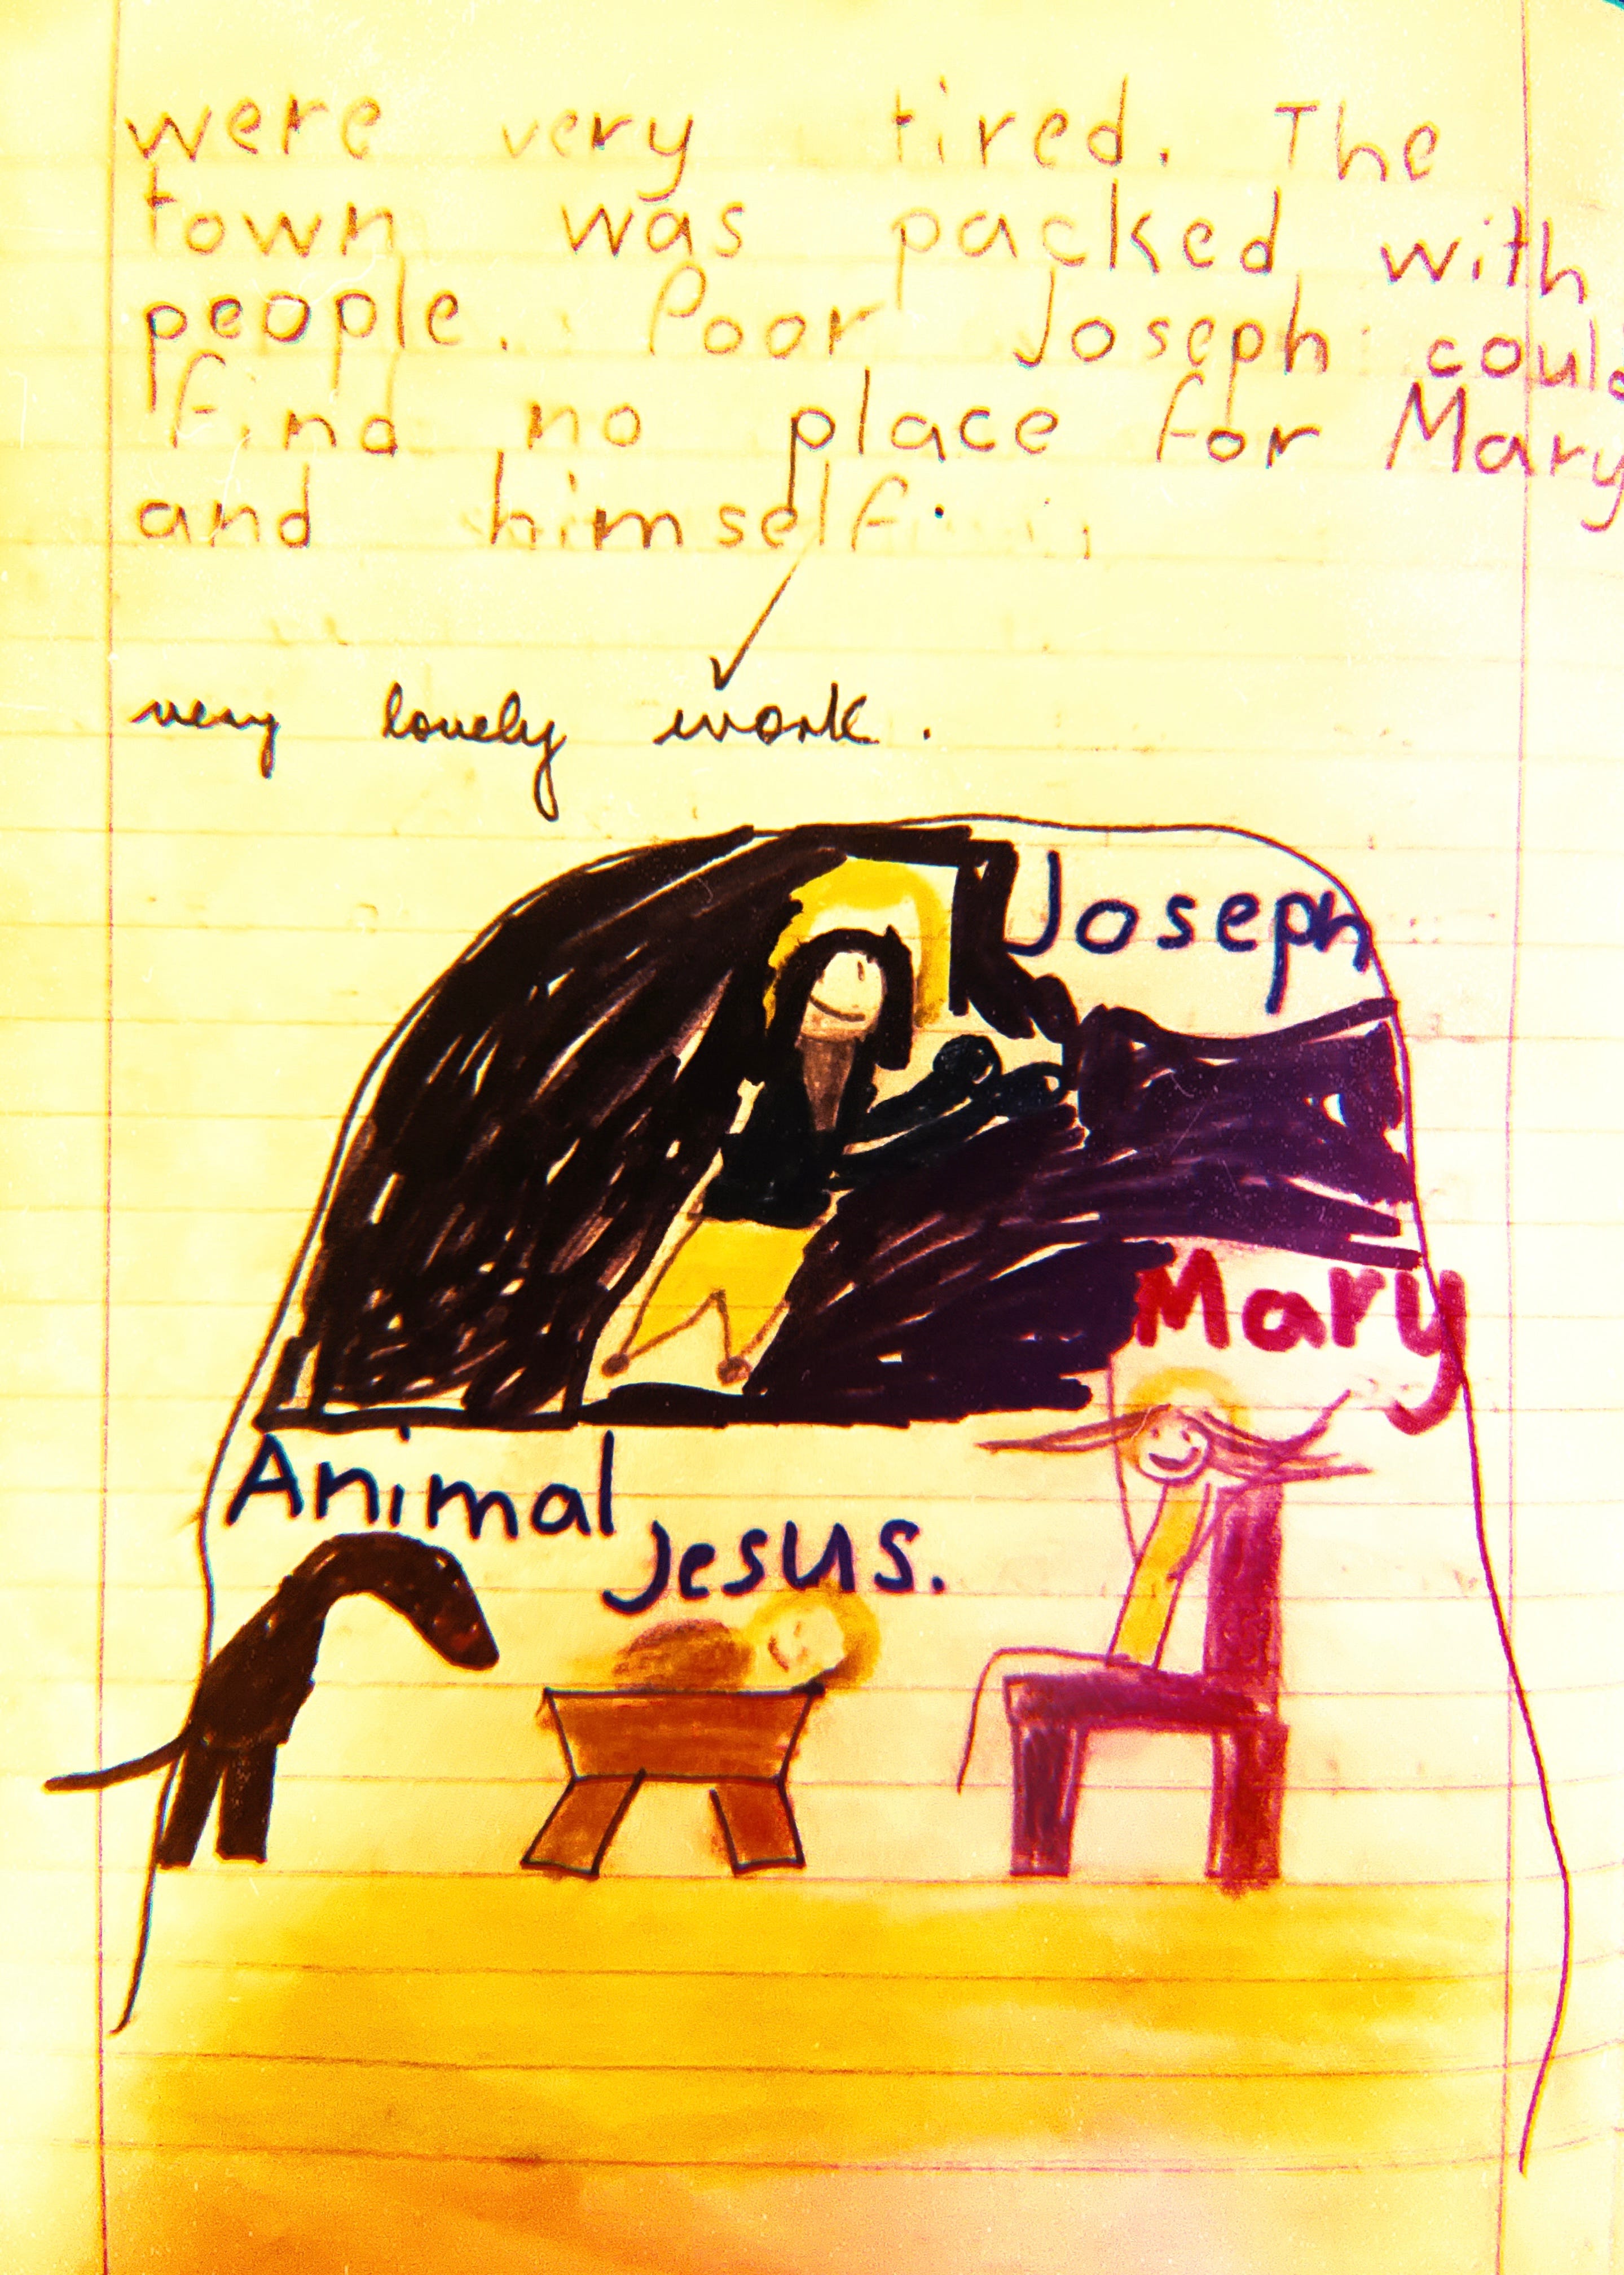 were very tired. The
town was packed with
people. Poor Joseph could
find no place for Mary
and himself.
very lovely work.
Joseph
Mary
Animal
Jesus.